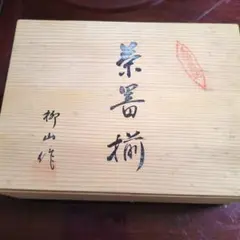 茶器揃
柳山作